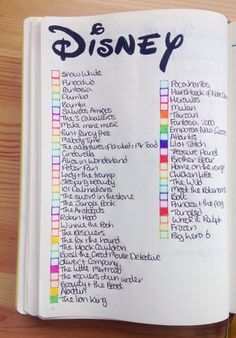 DISNEY
Snow White
Pinocchio
Fantasia
Dumbo
Bambi
Saludos Amigos
The 3 Caballeros
Make mine music
Fun & fancy free
Melody Time
The adventures of Ichabod & Mr Toad
Cinderella
Alice in Wonderland
Peter Pan
Lady & the tramp
Sleeping beauty
101 Dalmatians
The sword in the stone
The Jungle Book
The Aristocats
Robin Hood
Winnie the Pooh
The Rescuers
The Fox & the hound
The black Cauldron
Basil the Great Mouse Detective
Oliver & Company
The Little mermaid
The rescuers down under
Beauty & the Beast
Aladdin
The Lion King
Pocahontas
Hunchback of Notre Dame
Hercules
Mulan
Tarzan
Fantasia 2000
Emperors New Groove
Atlantis
Lilo & Stitch
Treasure Planet
Brother Bear
Home on the range
Chicken Little
The Wild
Meet the Robinsons
Bolt
Princess & the frog
Tangled
Wreck it Ralph
Frozen
Big hero 6